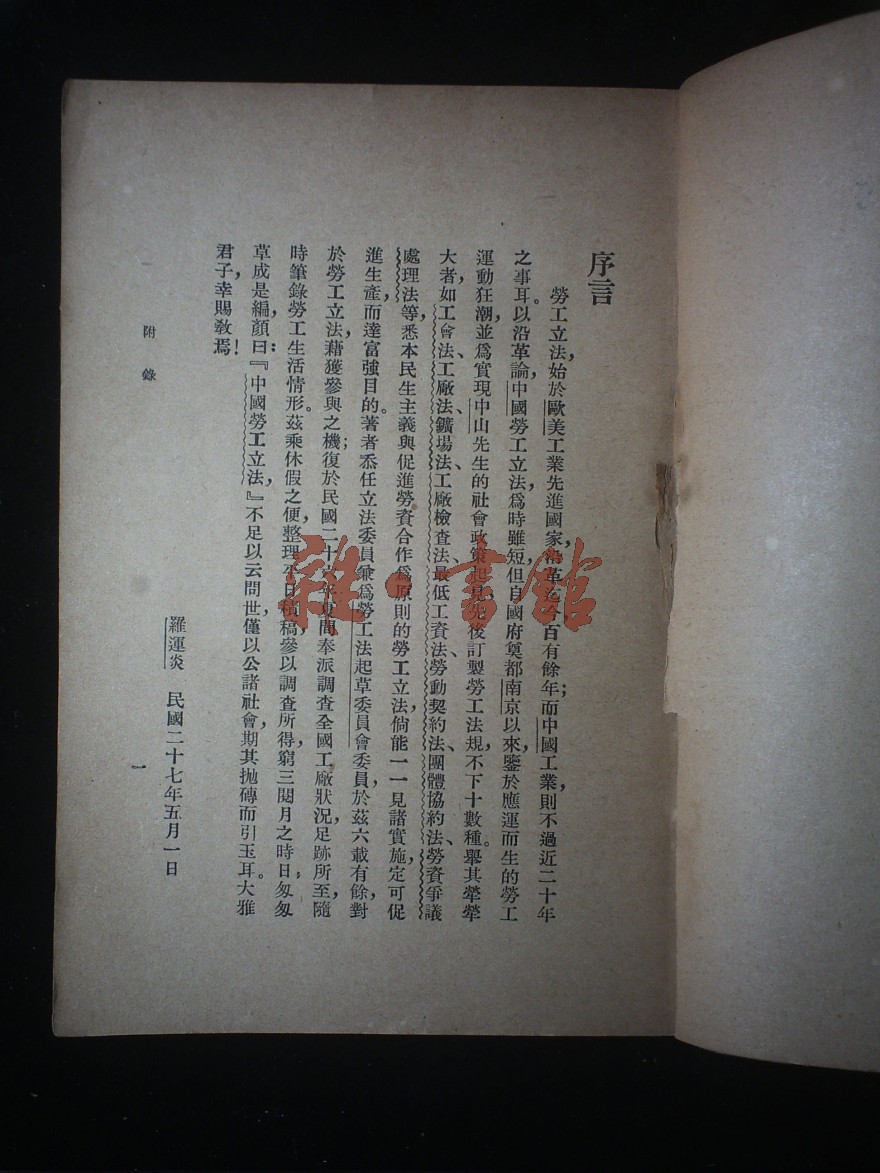 序言
勞工立法，始於歐美工業先進國家，沿革迄今百有餘年；而中國工業，則不過近二十年
之事耳。以沿革論，中國勞工立法，爲時雖短，但自國府奠都南京以來，鑒於應運而生的勞工
運動狂潮，並爲實現中山先生的社會政策起見，先後訂製勞工法規，不下十數種。舉其犖犖
大者，如工會法、工廠法、鑛場法、工廠檢查法、最低工資法、勞動契約法、團體協約法、勞資爭議
處理法等，悉本民生主義與促進勞資合作爲原則的勞工立法，倘能一一見諸實施，定可促
進生產，而達富強目的。著者忝任立法委員兼爲勞工法起草委員會委員，於茲六載有餘，對
於勞工立法，藉獲參與之機；復於民國二十六年夏間奉派調查全國工廠狀況，足跡所至，隨
時筆錄勞工生活情形。茲乘休假之便，整理平日積稿，參以調查所得，窮三閱月之時日，匆匆
草成是編，顏曰：『中國勞工立法，』不足以云問世，僅以公諸社會，期其拋磚而引玉耳。大雅
君子，幸賜教焉！
羅運炎　民國二十七年五月一日
附錄
一
雜·書館